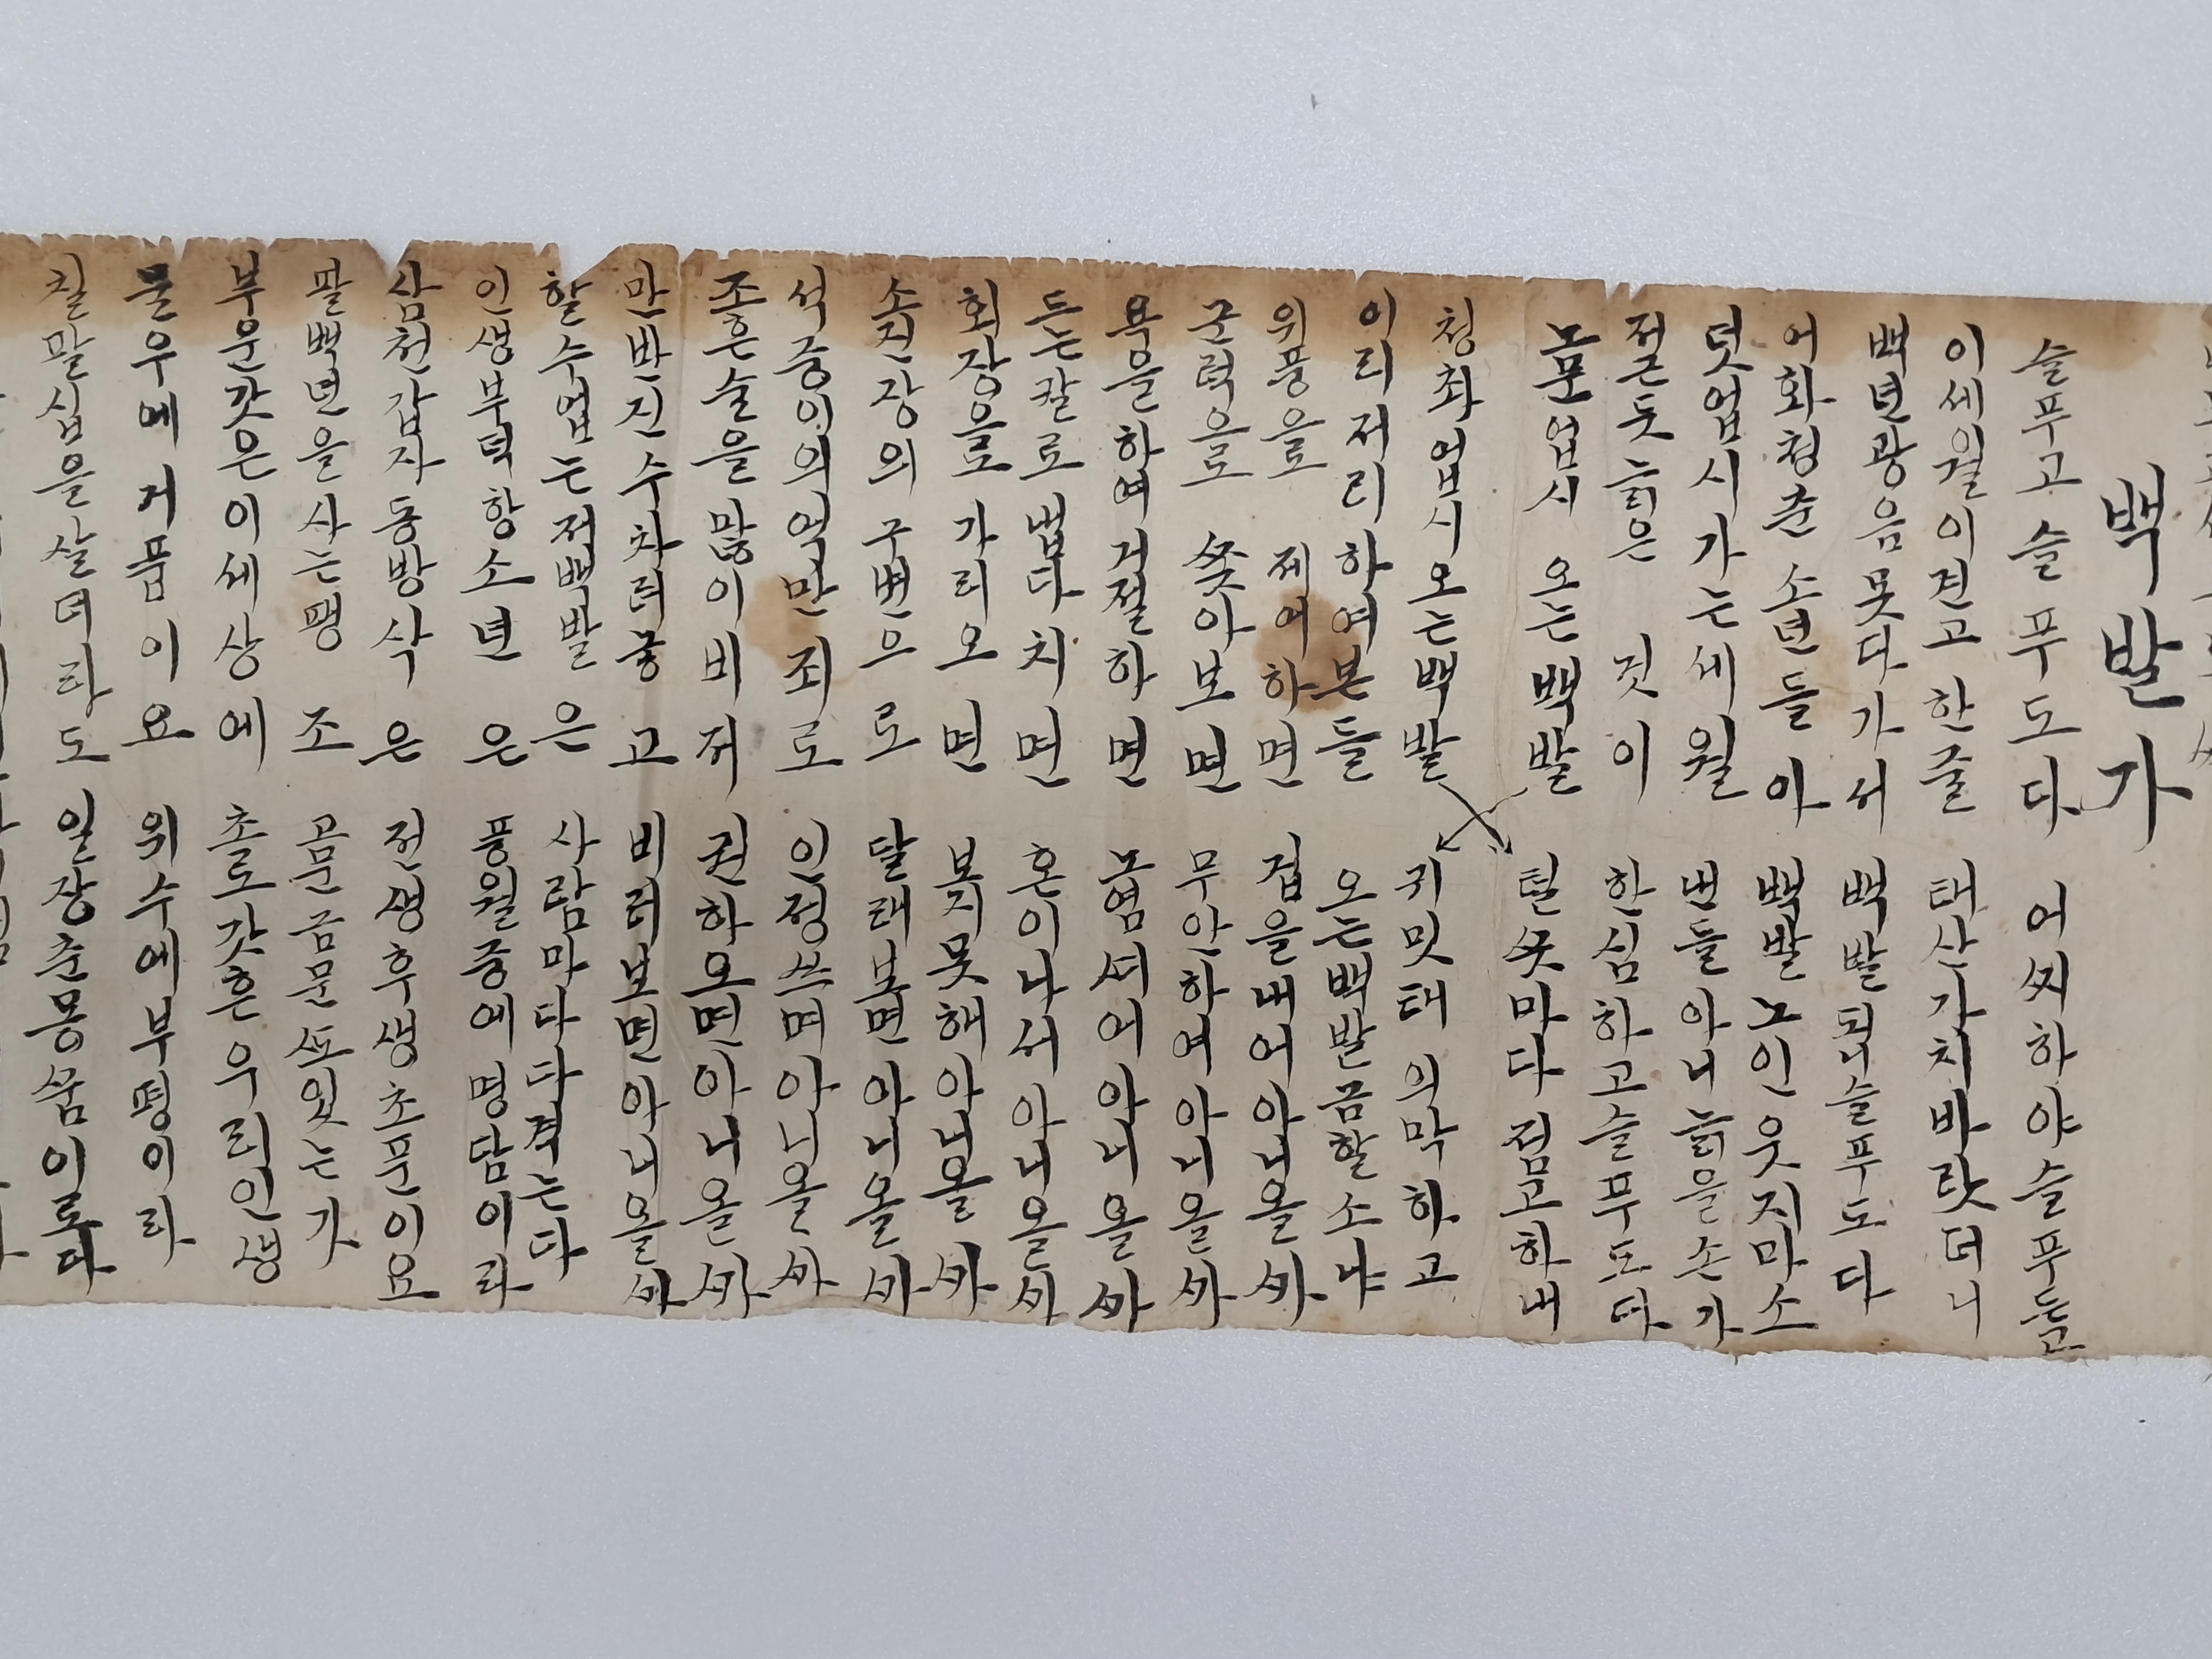 백발가
슬푸고 슬푸도다 어찌하야 슬푸든고
이세월이 견고한줄 태산가치 바랏더니
백년광음 못다가서 백발되니 슬푸도다
어화청춘 소년들아 백발노인 웃지마소
덧업시가는세월 낸들아니 늙을손가
저근듯 늙은 것이 한심하고 슬푸도다
노문업시 오는백발 털끗마다 점고하내
청좌업시 오는백발 귀밋태 의막하고
이리저리 하여본들 오는백발 금할소냐
위풍을로 제어하면 겁을내여 아니올까
군력으로 쫏아보면 무안하여 아니올까
욕을하여 거절하면 노염셔여 아니올까
드는칼로 냅다치면 혼이나서 아니올까
휘장을로 가리오면 보지못해 아니올까
소진장의 구변으로 달래보면 아니올까
석숭의의 억만죄로 인정쓰며 아니올까
조흔술을 많이비저 권하오면 아니올까
만반진수 차려놓고 비러보면 아니올까
할수업는 저백발은 사람마다 다격는다
인생부텨항소년은 풍월중에 명담이라
삼천갑자 동방삭은 전생후생 초문이요
팔백년을 사는팽조 고문금문 또잇는가
부운갓은 이세상에 초로갓흔 우리인생
물우에 거품이요 위수에 부평이라
칠팔십을 살더라도 일장춘몽 꿈이로다